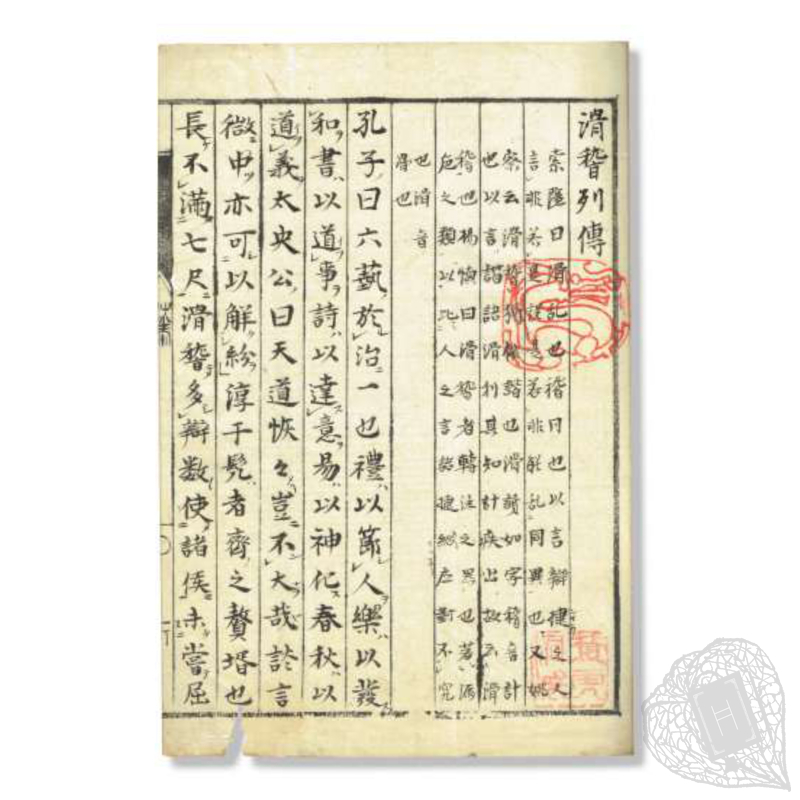 滑稽列傳
索隱曰滑乱也稽曰也以言辯捷之人
言非若是説是若非能乱同異也又姚
察云滑稽猶俳諧也滑讀如字稽音計
也以言諧語滑利其知計疾出故云滑
稽也楊惲曰滑稽者轉注之器也若漏
危之類以比人之言語捷給应對不究
也滑音
骨也
孔子曰六藝於治一也禮以節人樂以發
和書以道事詩以達意易以神化春秋以
道義太史公曰天道恢々豈不大哉談言
微中亦可以解紛淳于髡者齊之贅壻也
長不滿七尺滑稽多辯数使諸侯未嘗屈